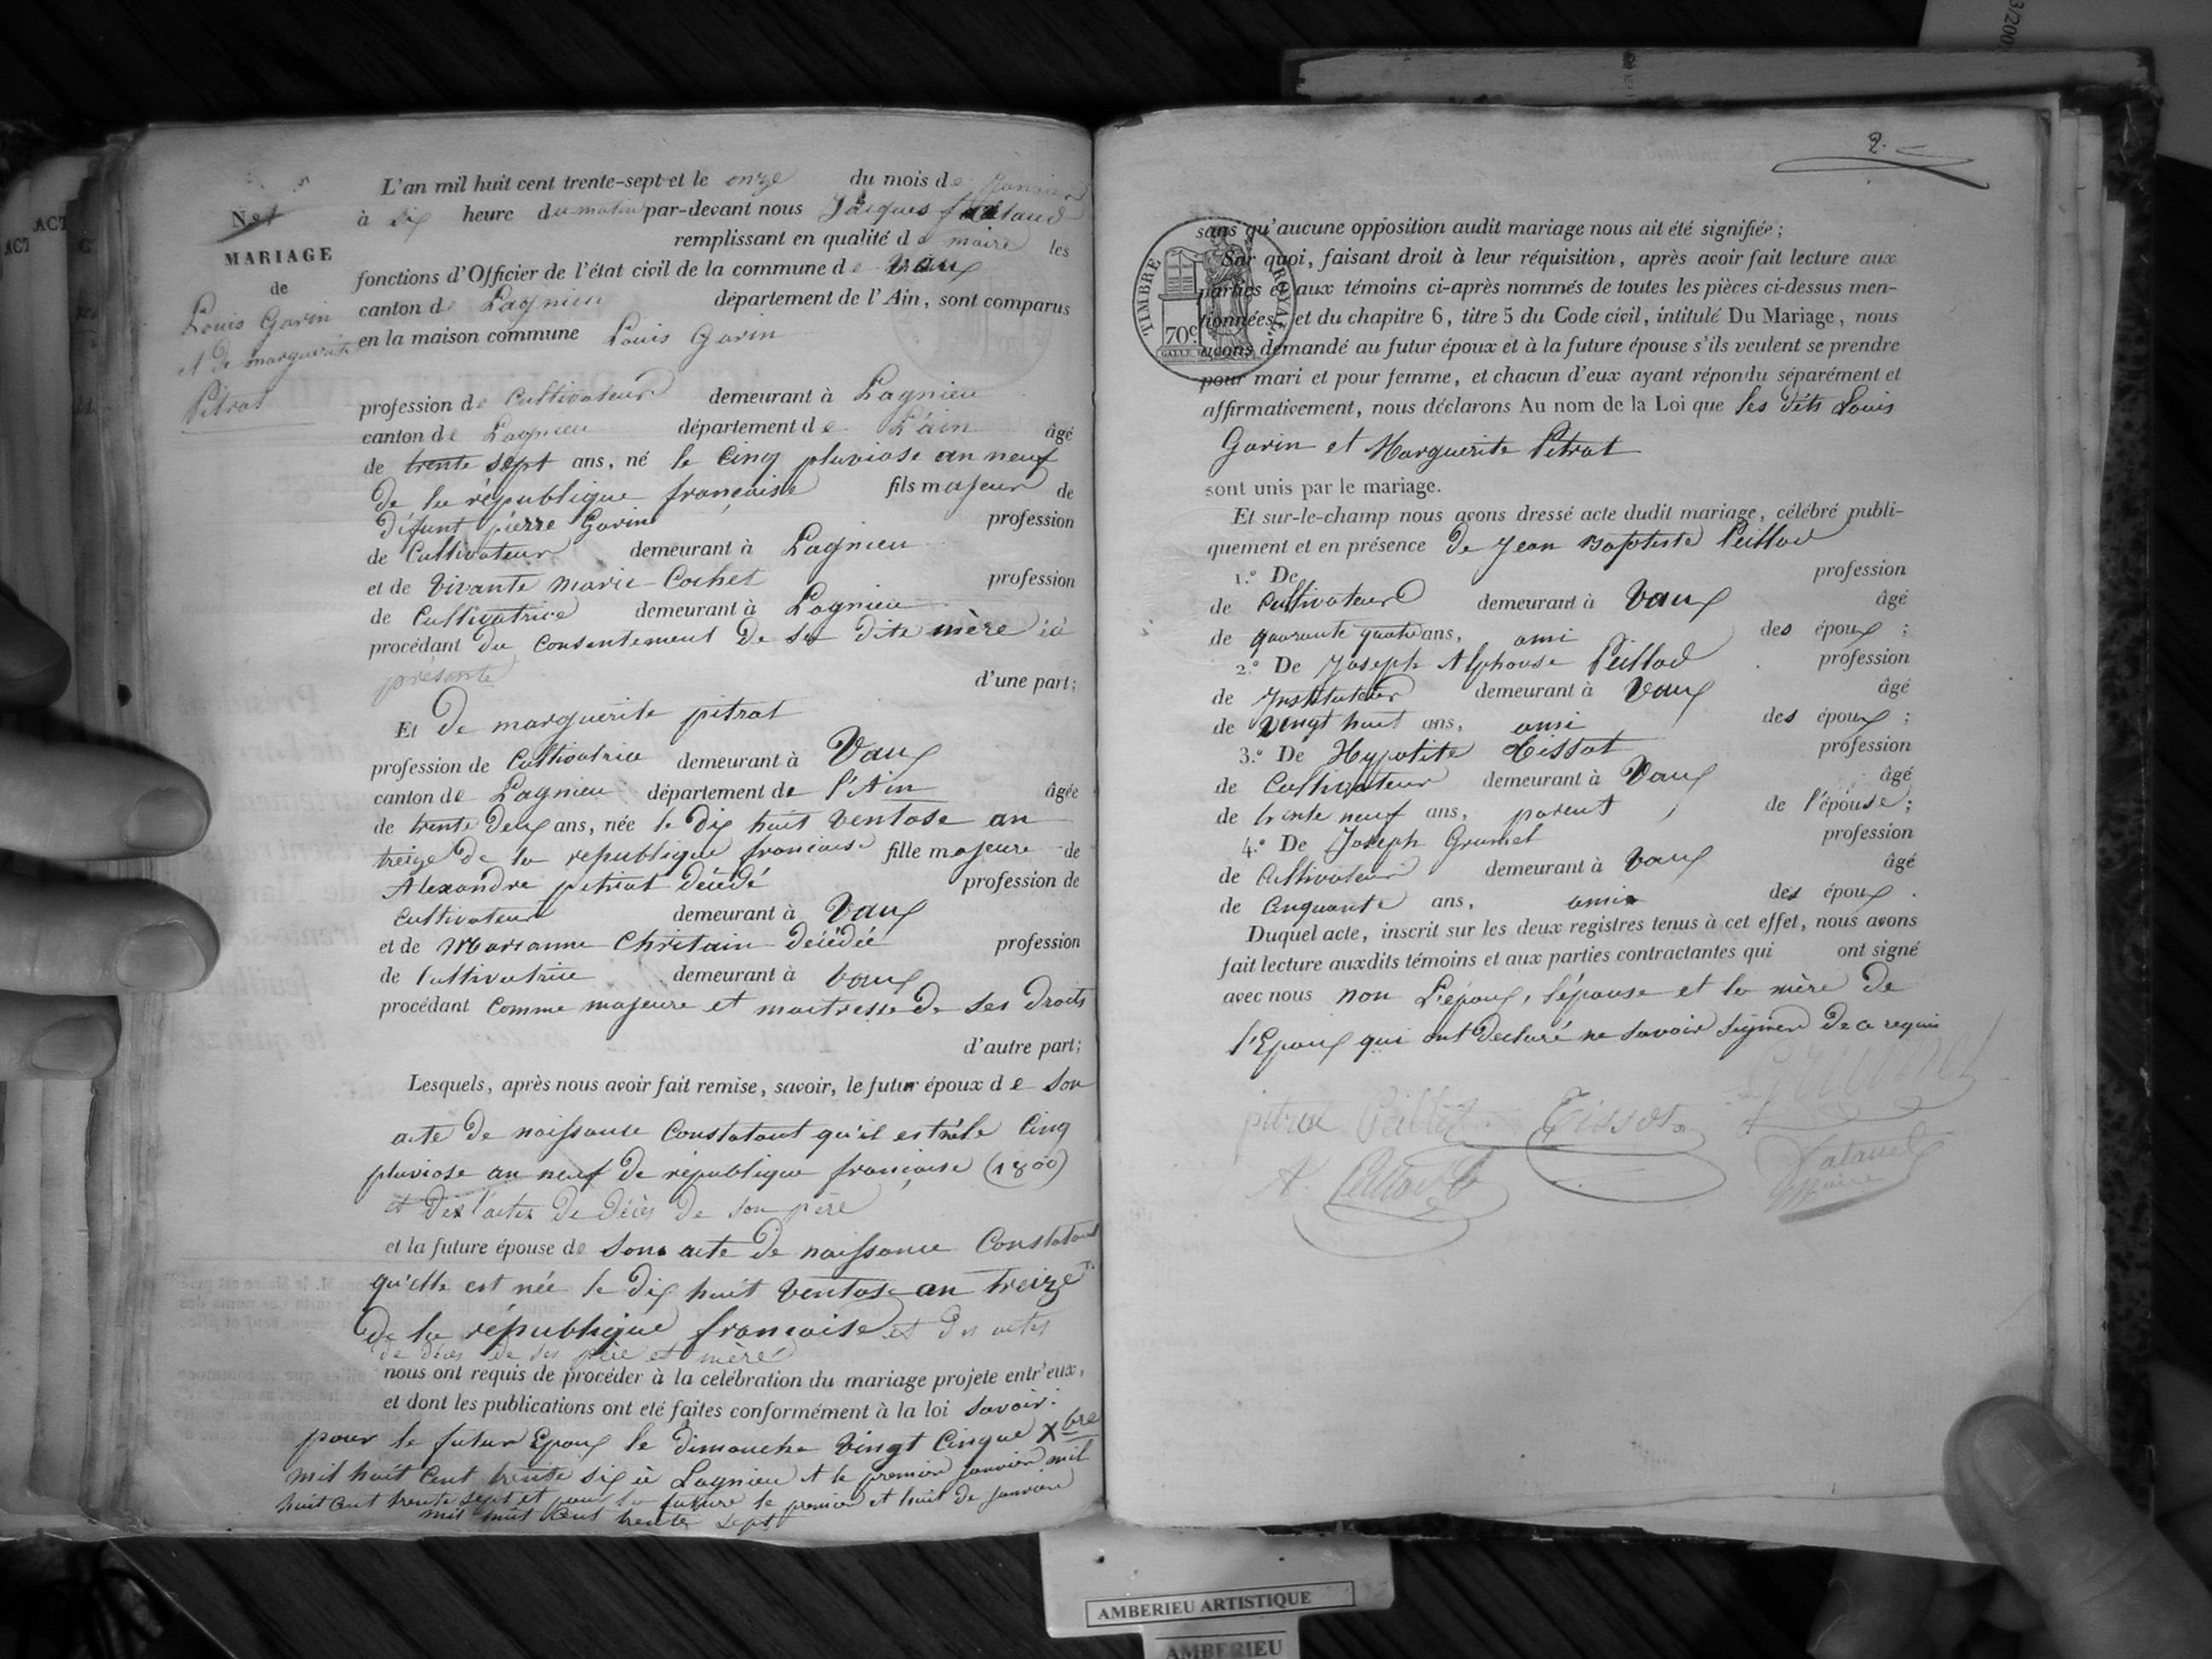 N.º 1
MARIAGE
de
Louis Gorin
et de marguerite
Pitrat
L'an mil huit cent trente-sept et le onze du mois de Janvier
à dix heure du matin par-devant nous Jacques
remplissant en qualité de maire les
fonctions d'Officier de l'état civil de la commune de Vaux
canton de Lagnieu département de l'Ain, sont comparus
en la maison commune Louis Gorin
profession de Cultivateur demeurant à Lagnieu
canton de Lagnieu département de L'ain âgé
de trente sept ans, né le Cinq pluviose an neuf
de la république française fils majeur de
Défunt pierre Gorin profession
de Cultivateur demeurant à Lagnieu
et de Vivante marie Cochet profession
de Cultivatrice demeurant à Lagnieu
procédant du Consentement de sa dite mère ici
présente d'une part;
Et De marguerite pitrat
profession de Cultivatrice demeurant à Vaux
canton de Lagnieu département de l'Ain âgée
de trente Deux ans, née le Dix huit Ventose an
treize de la republique francaise fille majeure de
Alexandre pitrat décédé profession de
Cultivateur demeurant à Vaux
et de Marianne Chritain décédée profession
de Cultivatrice demeurant à Vaux
procédant Comme majeure et maitresse de ses Droits
d'autre part;
Lesquels, après nous avoir fait remise, savoir, le futur époux de son
acte de naissance Constatant qu'il est né le Cinq
pluviose an neuf de république française (1800)
et des l'actes De Décès De son père
et la future épouse de son acte de naissance Constatant
qu'elle est née le Dix huit Ventose an treize
De la république francaise et des actes
de décès de ses père et mère
nous ont requis de procéder à la celébration du mariage projeté entr'eux,
et dont les publications ont eté faites conformément à la loi savoir:
pour le futur Epoux le dimanche Vingt Cinque Xbre
mil huit Cent trente six à Lagnieu et le premier janvier mil
huit Cent trente sept et pour la future le premier et huit de janvier
mil huit Cent trente sept
2.
sans qu'aucune opposition audit mariage nous ait été signifiée;
Sur quoi, faisant droit à leur réquisition, après avoir fait lecture aux
parties et aux témoins ci-après nommés de toutes les pièces ci-dessus men-
tionnées, et du chapitre 6, titre 5 du Code civil, intitulé Du Mariage, nous
avons demandé au futur époux et à la future épouse s'ils veulent se prendre
pour mari et pour femme, et chacun d'eux ayant répondu séparément et
affirmativement, nous déclarons Au nom de la Loi que les dits Louis
Gorin et Marguerite Pitrat
sont unis par le mariage.
Et sur-le-champ nous avons dressé acte dudit mariage, célébré publi-
quement et en présence De Jean Baptiste Peillod
1.º De profession
de Cultivateur demeurant à Vaux âgé
de quarante quatre ans, ami des époux;
2.º De Joseph Alphonse Peillod profession
de Instituteur demeurant à Vaux âgé
de Vingt huit ans, ami des époux;
3.º De Hypolite Tissot profession
de Cultivateur demeurant à Vaux âgé
de trente neuf ans, parent de l'épouse;
4.º De Joseph Grumet profession
de Cultivateur demeurant à Vaux âgé
de Cinquante ans, ami des époux.
Duquel acte, inscrit sur les deux registres tenus à cet effet, nous avons
fait lecture auxdits témoins et aux parties contractantes qui ont signé
avec nous non L'époux, l'épouse et la mère De
l'Epoux qui ont Declaré ne savoir signer De ce requis
Grumet
Peillod Tissot
A. Peillod
maire
TIMBRE ROYAL
70c
AMBERIEU ARTISTIQUE
AMBERIEU